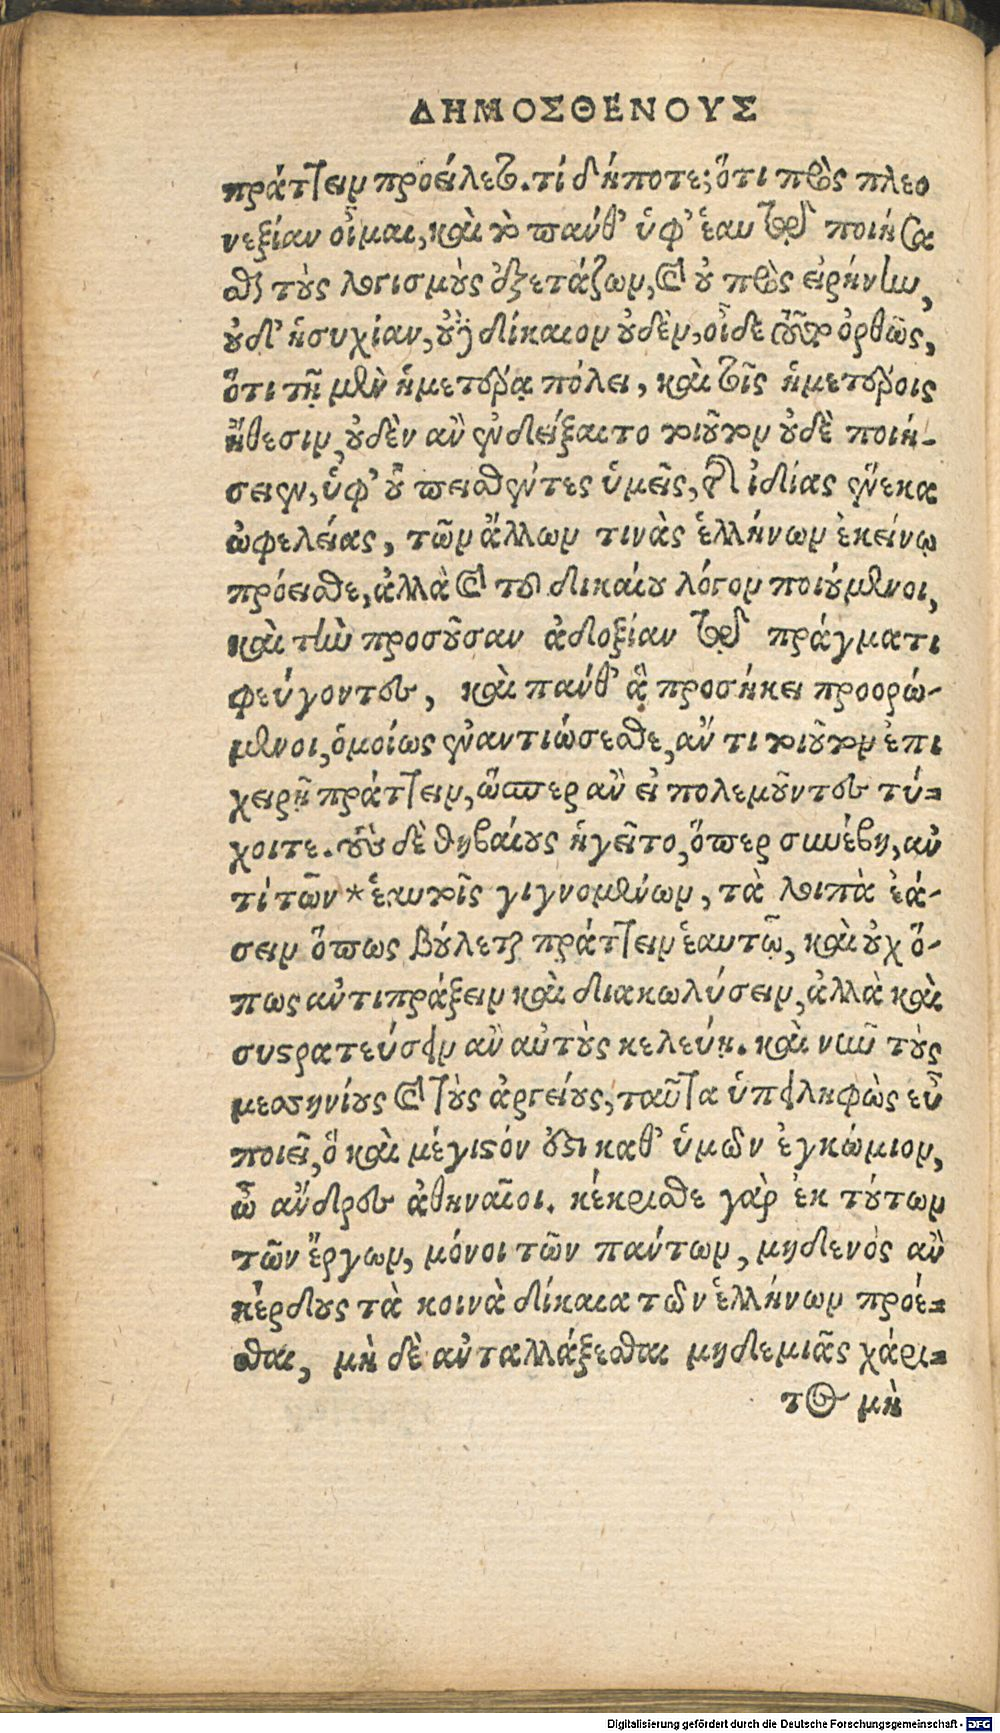 ΔΗΜΟΣΘΕΝΟΥΣ
πράττειν προείλετο. τί δήποτε; ὅτι πρὸς πλεο
νεξίαν οἶμαι, καὶ τὸ πάνθ' ὑφ' ἑαυτῷ ποιήσα
σθαι τοὺς λογισμοὺς ἐξετάζων, καὶ οὐ πρὸς εἰρήνην,
οὐδ' ἡσυχίαν, οὐδὲ δίκαιον οὐδὲν, οἶδε τοῦτο ὀρθῶς,
ὅτι τῇ μὲν ἡμετέρᾳ πόλει, καὶ τοῖς ἡμετέροις
ἤθεσιν, οὐδὲν ἂν ἐνδείξαιτο τοιοῦτον οὐδὲ ποιή-
σειεν, ὑφ' οὗ πεισθέντες ὑμεῖς, τῆς ἰδίας ἕνεκα
ὠφελείας, τῶν ἄλλων τινὰς ἑλλήνων ἐκείνῳ
πρόεισθε, ἀλλὰ καὶ τοῦ δικαίου λόγον ποιούμενοι,
καὶ τὴν προσοῦσαν ἀδοξίαν τῷ πράγματι
φεύγοντες, καὶ πάνθ' ἃ προσήκει προορώ-
μενοι, ὁμοίως ἐναντιώσεσθε, ἄν τι τοιοῦτον ἐπι
χειρῇ πράττειν, ὥσπερ ἂν εἰ πολεμοῦντες τύ-
χοιτε. τοὺς δὲ θηβαίους ἡγεῖτο, ὅπερ συνέβη, ἀν
τὶ τῶν * ἑαυτοῖς γιγνομένων, τὰ λοιπὰ ἐά-
σειν ὅπως βούλεται πράττειν ἑαυτῷ, καὶ οὐχ ὅ-
πως ἀντιπράξειν καὶ διακωλύσειν, ἀλλὰ καὶ
συστρατεύσειν ἂν αὐτοὺς κελεύῃ. καὶ νῦν τοὺς
μεσσηνίους καὶ τοὺς ἀργείους, ταῦτα ὑπειληφὼς εὖ
ποιεῖ, ὃ καὶ μέγιστόν ἐστι καθ' ὑμῶν ἐγκώμιον,
ὦ ἄνδρες ἀθηναῖοι. κέκρισθε γὰρ ἐκ τούτων
τῶν ἔργων, μόνοι τῶν πάντων, μηδενὸς ἂν
κέρδους τὰ κοινὰ δίκαια τῶν ἑλλήνων προέ-
σθαι, μὴ δὲ ἀνταλλάξεσθαι μηδεμιᾶς χάρι-
τος μὴ
Digitalisierung gefördert durch die Deutsche Forschungsgemeinschaft - DFG